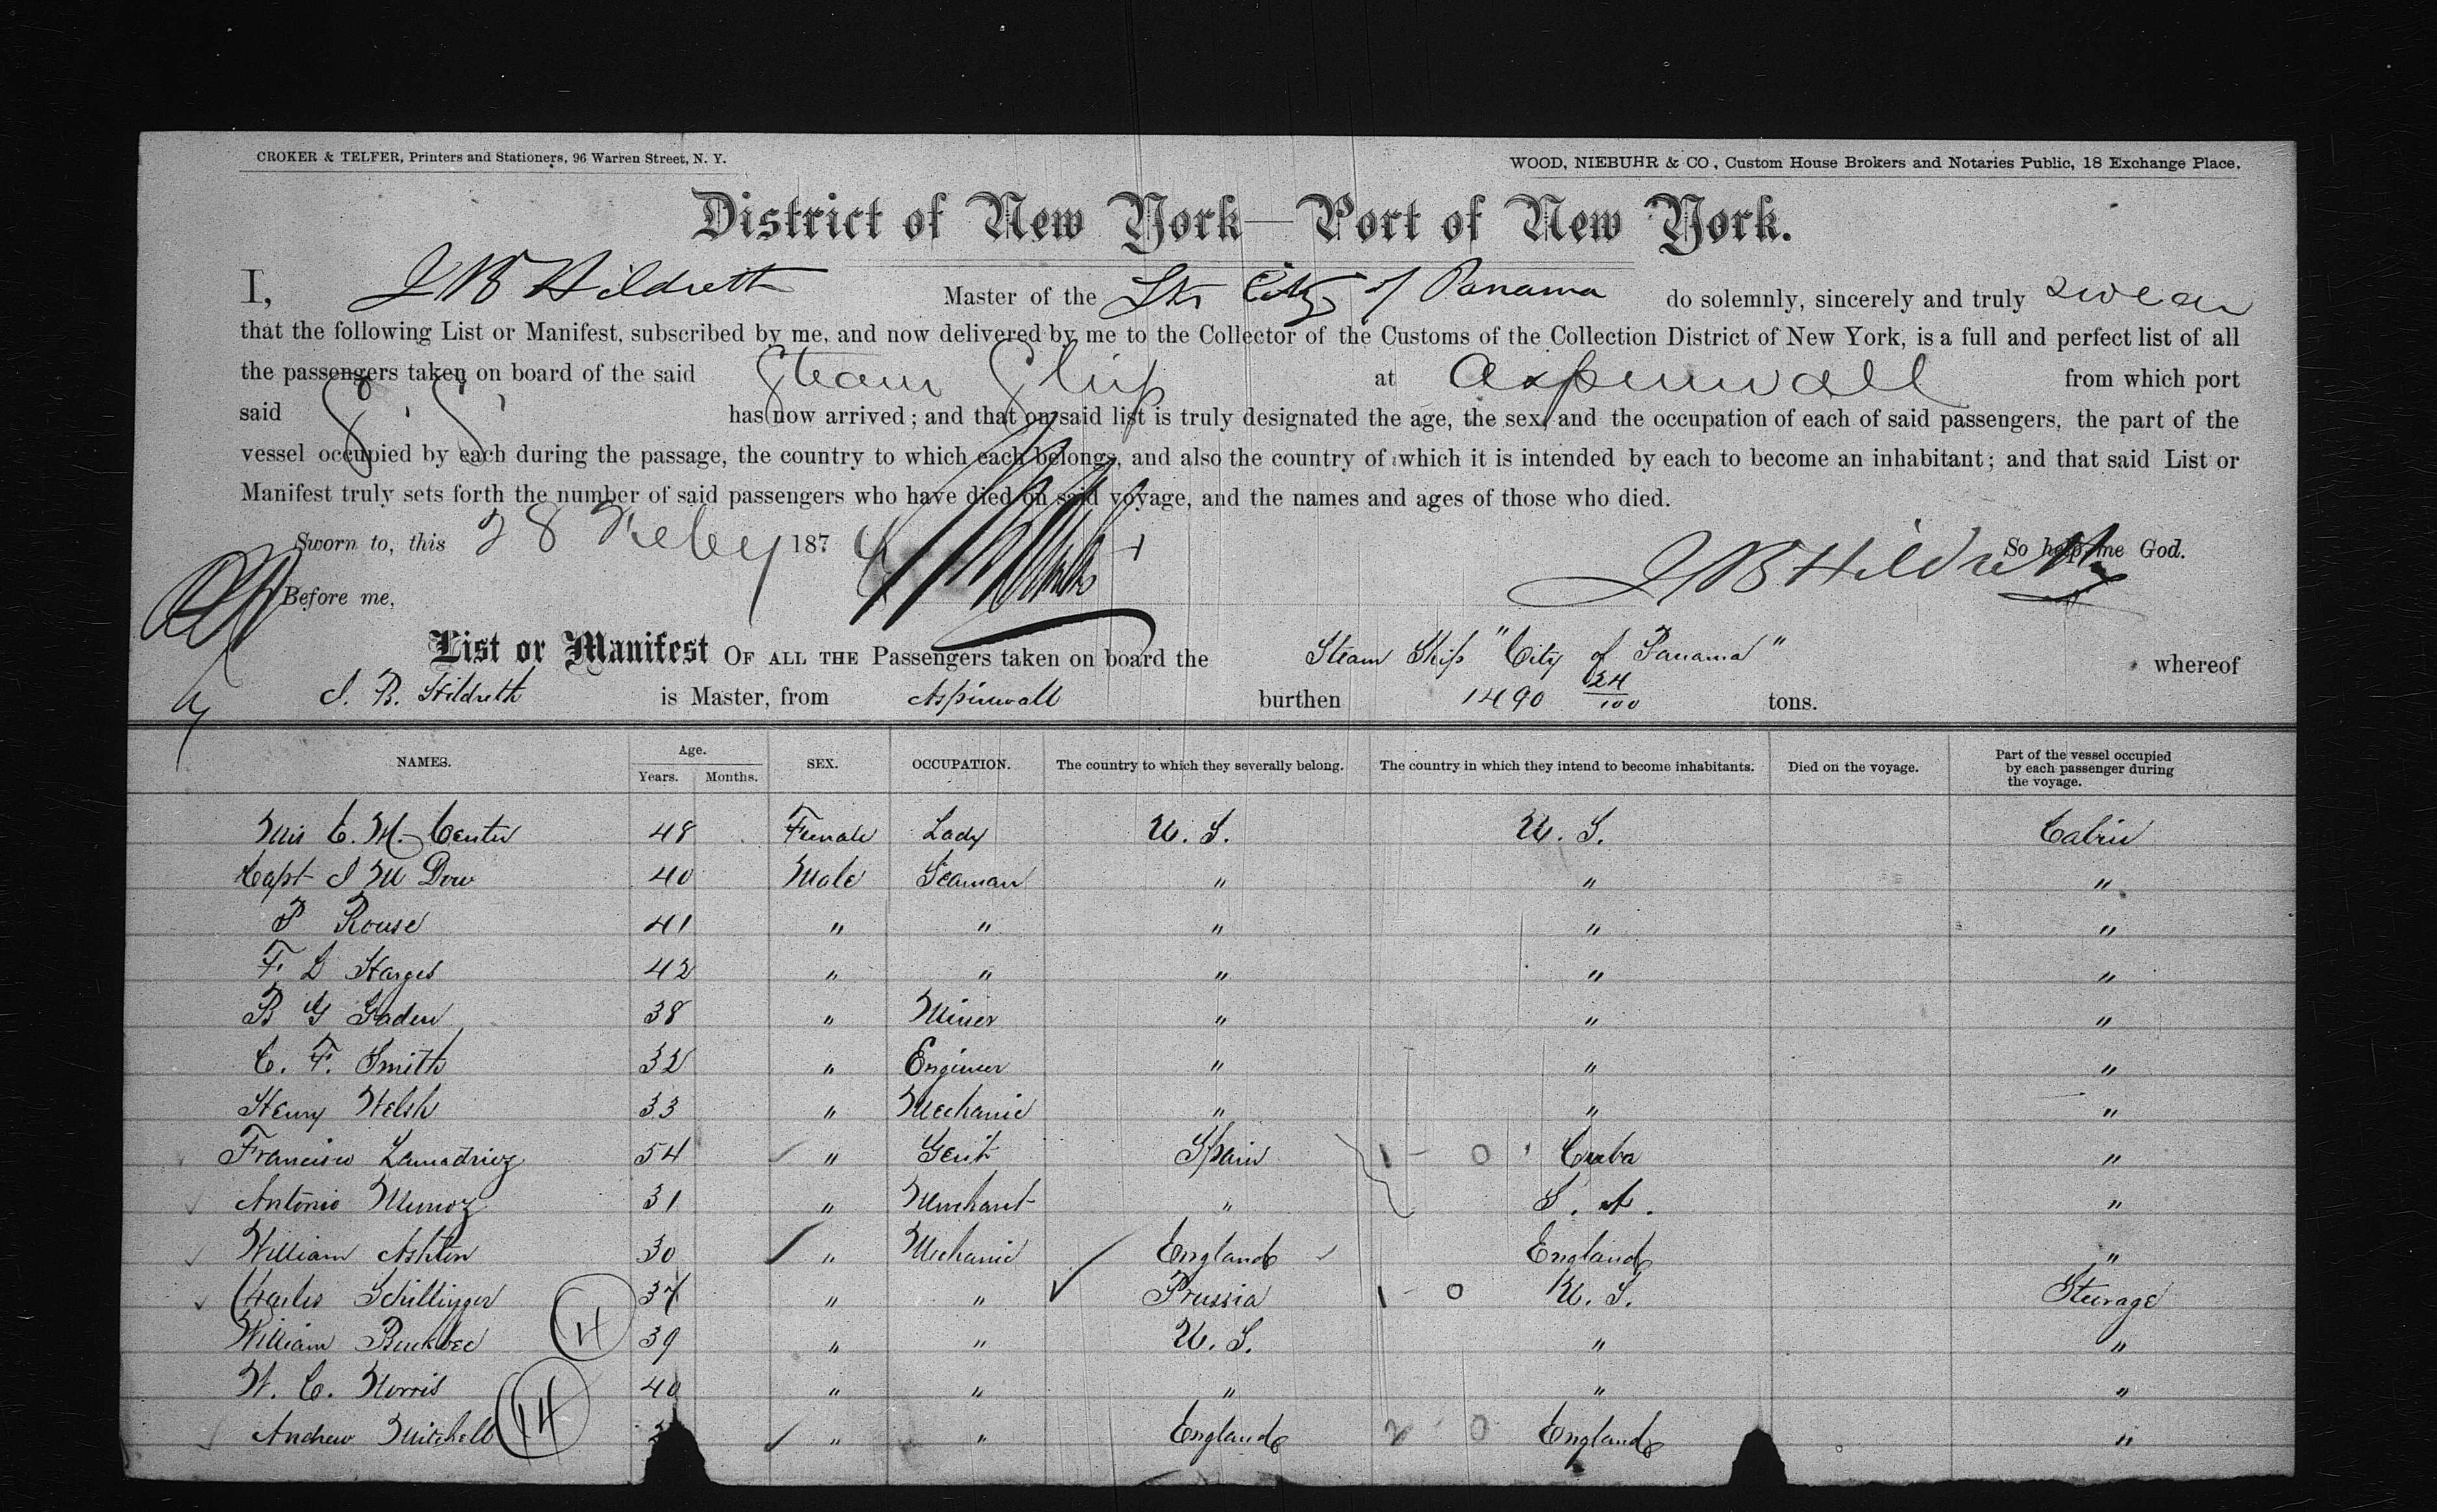 CROKER & TELFER, Printers and Stationers, 96 Warren Street, N. Y. WOOD, NIEBUHR & CO, Custom House Brokers and Notaries Public, 18 Exchange Place.
District of New York—Port of New York.
I, J B Hildreth Master of the Str City of Panama do solemnly, sincerely and truly swear
that the following List or Manifest, subscribed by me, and now delivered by me to the Collector of the Customs of the Collection District of New York, is a full and perfect list of all
the passengers taken on board of the said Steam Ship at Aspinwall from which port
said S. S. has now arrived; and that on said list is truly designated the age, the sex, and the occupation of each of said passengers, the part of the
vessel occupied by each during the passage, the country to which each belongs, and also the country of which it is intended by each to become an inhabitant; and that said List or
Manifest truly sets forth the number of said passengers who have died on said voyage, and the names and ages of those who died.
Sworn to, this 28 Feby 187 So help me God.
J B Hildreth
Before me,
List or Manifest OF ALL THE Passengers taken on board the Steam Ship "City of Panama" whereof
J. B. Hildreth is Master, from Aspinwall burthen 1490 24/100 tons.
NAMES. Age. Years. Months. SEX. OCCUPATION. The country to which they severally belong. The country in which they intend to become inhabitants. Died on the voyage. Part of the vessel occupied by each passenger during the voyage.
C. M. Center 48 Female Lady U. S. U. S. Cabin
Capt J M Dow 40 Male Seaman " " "
P Rouse 41 " " " " "
F L Harges 42 " " " " "
B G Gaden 38 " Miner " " "
C. F. Smith 32 " Engineer " " "
Henry Welsh 33 " Mechanic " " "
Francisco Lamadriez 54 " Gent Spain 1 - 0 Cuba "
Antonio Munoz 31 " Merchant " S. A. "
William Ashton 30 " Mechanic England England "
Charles Schillinger 37 " " Prussia 1 - 0 U. S. Steerage
William Buckbee 39 " " U. S. " "
W. C. Norris 40 " " " " "
14
Andrew Mitchell " " England 2 - 0 England "